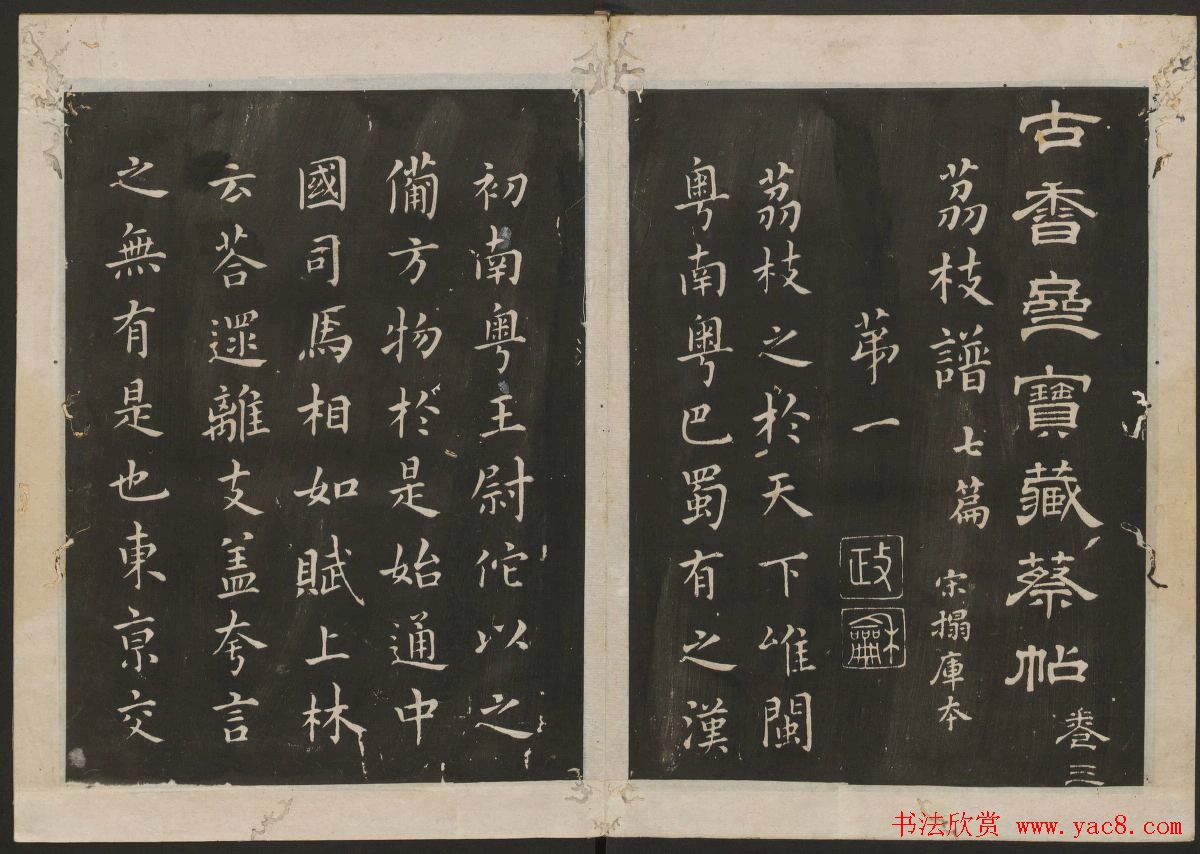 古香齋寶藏蔡帖
卷三
荔枝譜 七篇 宋搨庫本
第一
政
龢
荔枝之於天下唯閩
粵南粵巴蜀有之漢
初南粵王尉佗以之
備方物於是始通中
國司馬相如賦上林
云荅遝離支盖夸言
之無有是也東京交
书法欣赏 www.yac8.com